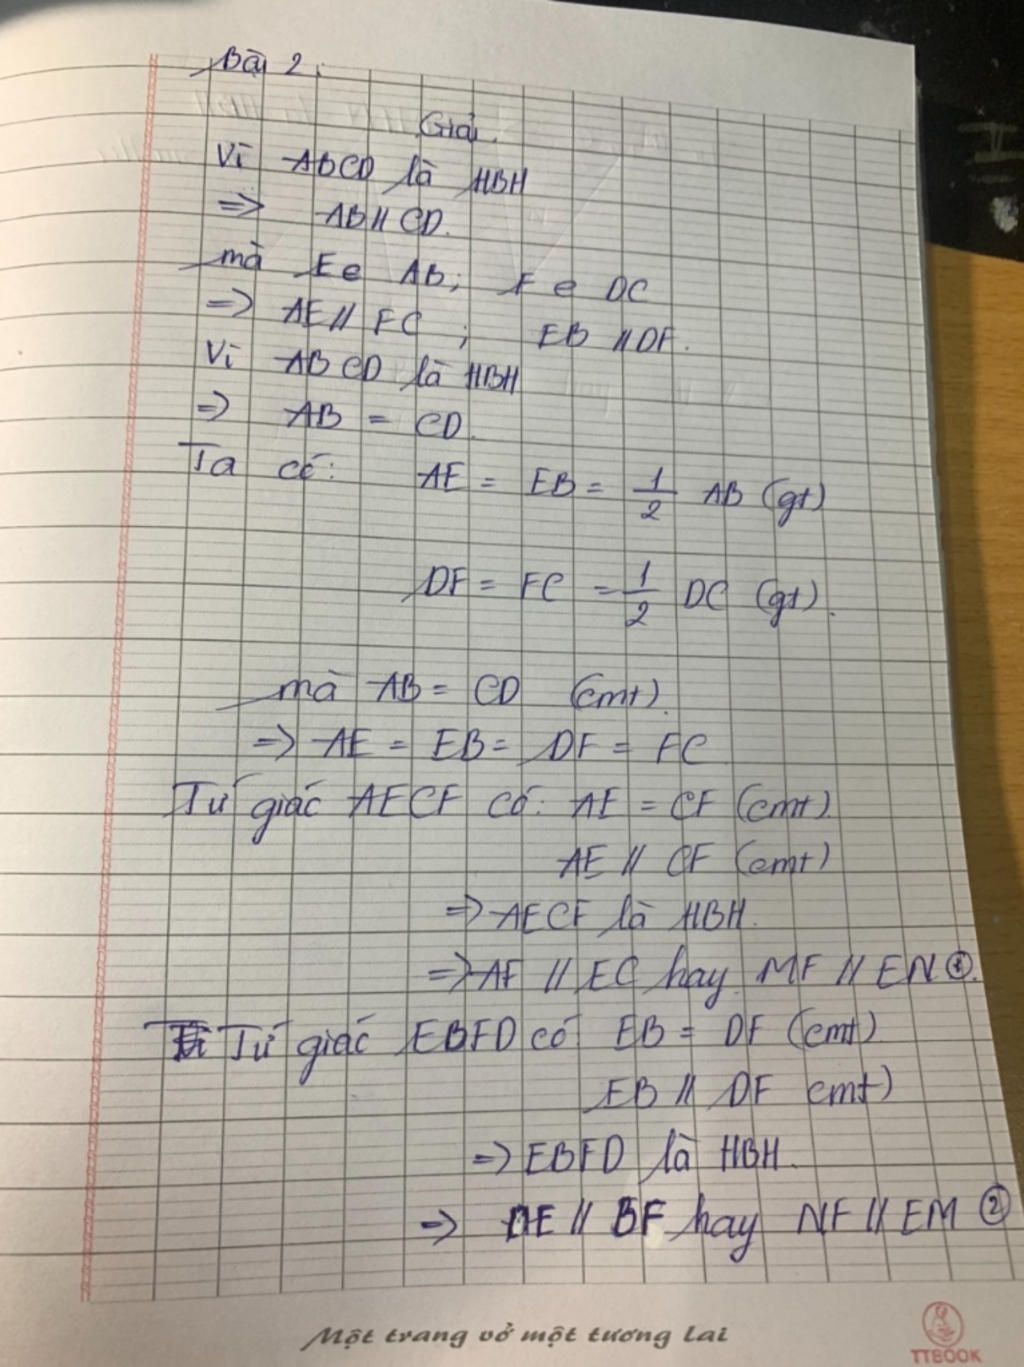 Bài 2:
Giải.
Vì ABCD là HBH
=> AB // CD.
mà E ∈ AB; F ∈ DC
=> AE // FC ; EB // DF.
Vì ABCD là HBH
=> AB = CD.
Ta có: AE = EB = 1/2 AB (gt)
DF = FC = 1/2 DC (gt).
mà AB = CD (cmt).
=> AE = EB = DF = FC
Tứ giác AECF có: AE = CF (cmt).
AE // CF (cmt)
=> AECF là HBH.
=> AF // EC hay MF // EN ①.
Tứ giác EBFD có EB = DF (cmt)
EB // DF cmt)
=> EBFD là HBH.
=> DE // BF hay NF // EM ②
Một trang vở một tương lai
TTBOOK